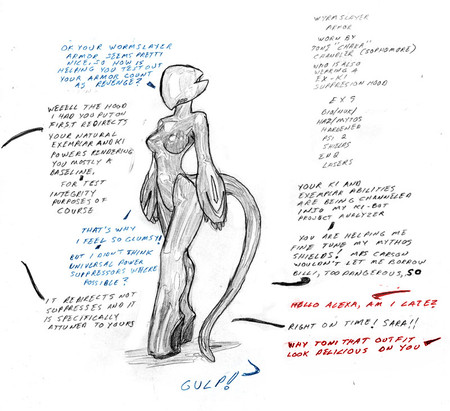 OK YOUR WORMSLAYER
ARMOR SEEMS PRETTY
NICE, SO HOW IS
HELPING YOU TEST OUT
YOUR ARMOR COUNT
AS REVENGE?
WEEELL THE HOOD
I HAD YOU PUT ON
FIRST REDIRECTS
YOUR NATURAL
EXEMPLAR AND KI
POWERS RENDERING
YOU MOSTLY A
BASELINE.
FOR TEST
INTEGRITY
PURPOSES OF
COURSE
THAT'S WHY
I FEEL SO CLUMSY!
BUT I DIDN'T THINK
UNIVERSAL POWER
SUPPRESSORS WHERE
POSSIBLE?
IT REDIRECTS NOT
SUPPRESSES AND IT
IS SPECIFICALLY
ATTUNED TO YOURS
GULP!
WYRMSLAYER
ARMOR
WORN BY
TONI "CHAKA"
CHANDLER (SOPHOMORE)
WHO IS ALSO
WEARING A
EX-KI
SUPPRESION HOOD
EX 5
BIO/NUK/
HAZ/MYTHOS
HARDENED
PSI 2
SHIELDS
EN 8
LASERS
YOUR KI AND
EXEMPLAR ABILITIES
ARE BEING CHANNELED
INTO MY KI-BOT
PROJECT ANALYZER
YOU ARE HELPING ME
FINE TUNE MY MYTHOS
SHIELDS! MRS CARSON
WOULDN'T LET ME BORROW
BILLI, TOO DANGEROUS, SO
HELLO ALEXA, AM I LATE?
RIGHT ON TIME! SARA!!
WHY TONI THAT OUTFIT
LOOK DELICIOUS ON YOU